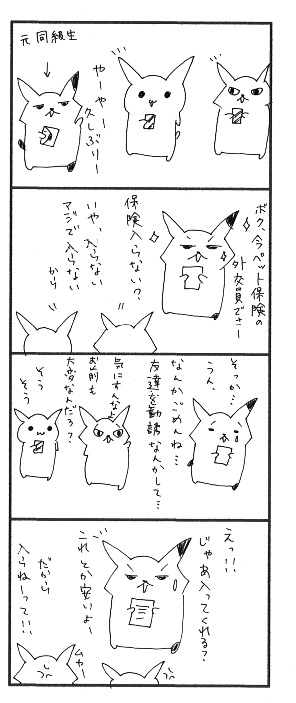 元同級生
やーやー
久しぶりー
ボク、今ペット保険の
外交員でさー
保険入らない?
いや、入らない
マジで入らない
から
そっか…
うん、
なんかごめんね…
友達を勧誘なんかして…
気にすんなよ
お前も
大変なんだろ?
そう
そう
えっ!!
じゃあ入ってくれる?
これとか安いよー
だから
入らねーって!!
ムキー